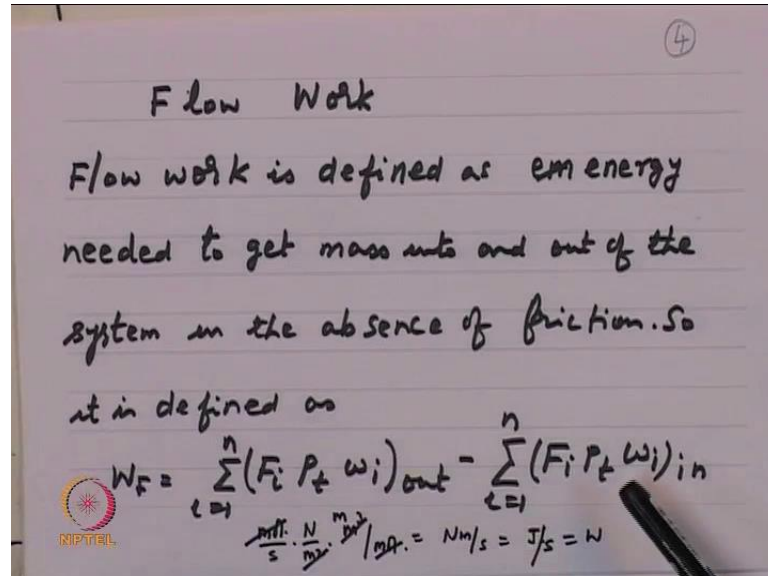 ④
Flow Work
Flow work is defined as em energy
needed to get mass into and out of the
system in the absence of friction. So
it is defined as
W_F = Σ_{i=1}^{n} (F_i P_t ω_i)_{out} - Σ_{i=1}^{n} (F_i P_t ω_i)_{in}
mol/s · N/m² · m³/mol = Nm/s = J/s = W
NPTEL